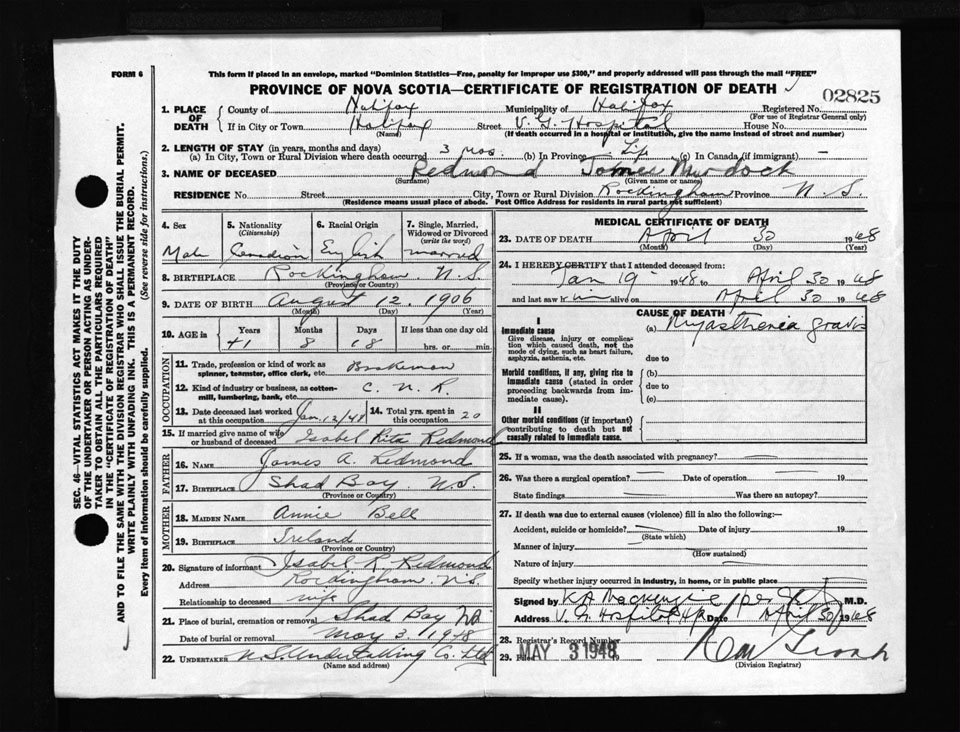 FORM 6
This form if placed in an envelope, marked "Dominion Statistics—Free, penalty for improper use $300," and properly addressed will pass through the mail "FREE"
PROVINCE OF NOVA SCOTIA—CERTIFICATE OF REGISTRATION OF DEATH
02825
1. PLACE OF DEATH
County of Halifax Municipality of Halifax Registered No.
(For use of Registrar General only)
If in City or Town Halifax Street V. G. Hospital House No.
(Name) (If death occurred in a hospital or institution, give the name instead of street and number)
2. LENGTH OF STAY (in years, months and days)
(a) In City, Town or Rural Division where death occurred 3 mos. (b) In Province Life (c) In Canada (if immigrant) —
3. NAME OF DECEASED Redmond James Murdock
(Surname) (Given name or names)
RESIDENCE No. Street City, Town or Rural Division Rockingham Province N. S.
(Residence means usual place of abode. Post Office Address for residents in rural parts not sufficient)
4. Sex
Male
5. Nationality
(Citizenship)
Canadian
6. Racial Origin
English
7. Single, Married, Widowed or Divorced
(write the word)
married
8. BIRTHPLACE Rockingham. N. S.
(Province or Country)
9. DATE OF BIRTH August 12, 1906
(Month) (Day) (Year)
10. AGE in
Years Months Days If less than one day old
41 8 18 hrs. or min.
OCCUPATION
11. Trade, profession or kind of work as
spinner, teamster, office clerk, etc. Brakeman
12. Kind of industry or business, as cotton-
mill, lumbering, bank, etc. C. N. R.
13. Date deceased last worked at this occupation Jan. 12/48
14. Total yrs. spent in this occupation 20
15. If married give name of wife or husband of deceased Isabel Rita Redmond
FATHER
16. NAME James A. Redmond
17. BIRTHPLACE Shad Bay. N.S.
(Province or Country)
MOTHER
18. MAIDEN NAME Annie Bell
19. BIRTHPLACE Ireland
(Province or Country)
20. Signature of informant Isabel R. Redmond
Address Rockingham. N.S.
Relationship to deceased wife
21. Place of burial, cremation or removal Shad Bay NS
Date of burial or removal May 3. 1948
22. UNDERTAKER N. S. Undertaking Co. Ltd
(Name and address)
MEDICAL CERTIFICATE OF DEATH
23. DATE OF DEATH April 30 1948
(Month) (Day)
24. I HEREBY CERTIFY that I attended deceased from:
Jan 19 1948 to April 30 1948
and last saw him alive on April 30 1948
CAUSE OF DEATH
I
Immediate cause
Give disease, injury or complication which caused death, not the mode of dying, such as heart failure, asphyxia, asthenia, etc.
(a) Myasthenia gravis
due to
Morbid conditions, if any, giving rise to immediate cause (stated in order proceeding backwards from immediate cause).
(b)
due to
(c)
II
Other morbid conditions (if important) contributing to death but not causally related to immediate cause.
25. If a woman, was the death associated with pregnancy?
26. Was there a surgical operation? Date of operation 19
State findings Was there an autopsy?
27. If death was due to external causes (violence) fill in also the following:—
Accident, suicide or homicide? Date of injury 19
(State which)
Manner of injury
(How sustained)
Nature of injury
Specify whether injury occurred in industry, in home, or in public place
Signed by K A Mackenzie per M.D.
Address V. G. Hospital Hfx Date April 30 1948
28. Registrar's Record Number
29. MAY 3 1948
(Division Registrar)
SEC. 46—VITAL STATISTICS ACT MAKES IT THE DUTY
OF THE UNDERTAKER OR PERSON ACTING AS UNDER-
TAKER TO OBTAIN ALL THE PARTICULARS REQUIRED
IN THE "CERTIFICATE OF REGISTRATION OF DEATH"
AND TO FILE THE SAME WITH THE DIVISION REGISTRAR WHO SHALL ISSUE THE BURIAL PERMIT.
WRITE PLAINLY WITH UNFADING INK. THIS IS A PERMANENT RECORD.
Every item of information should be carefully supplied. (See reverse side for instructions.)